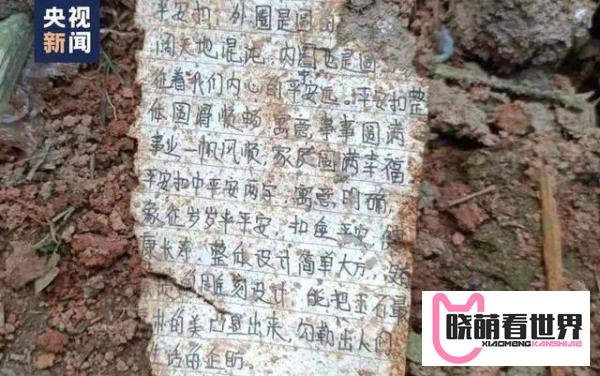 央视
新闻
平安扣,外圈是圆的
阔天地混沌,内圈也是圆
征着我们内心的平安远。平安扣整
体圆滑顺畅,寓意,事事圆满
事业一帆风顺,家庭圆满幸福
平安扣中平安两字,寓意明确,
象征岁岁平平安,扣住平安,健
康长寿,整体设计简单大方,
的雕刻设计,能把玉石最
的美凸显出来,勾勒出人们
生活的
晓萌看世界
XIAOMENGKANSHIJIE